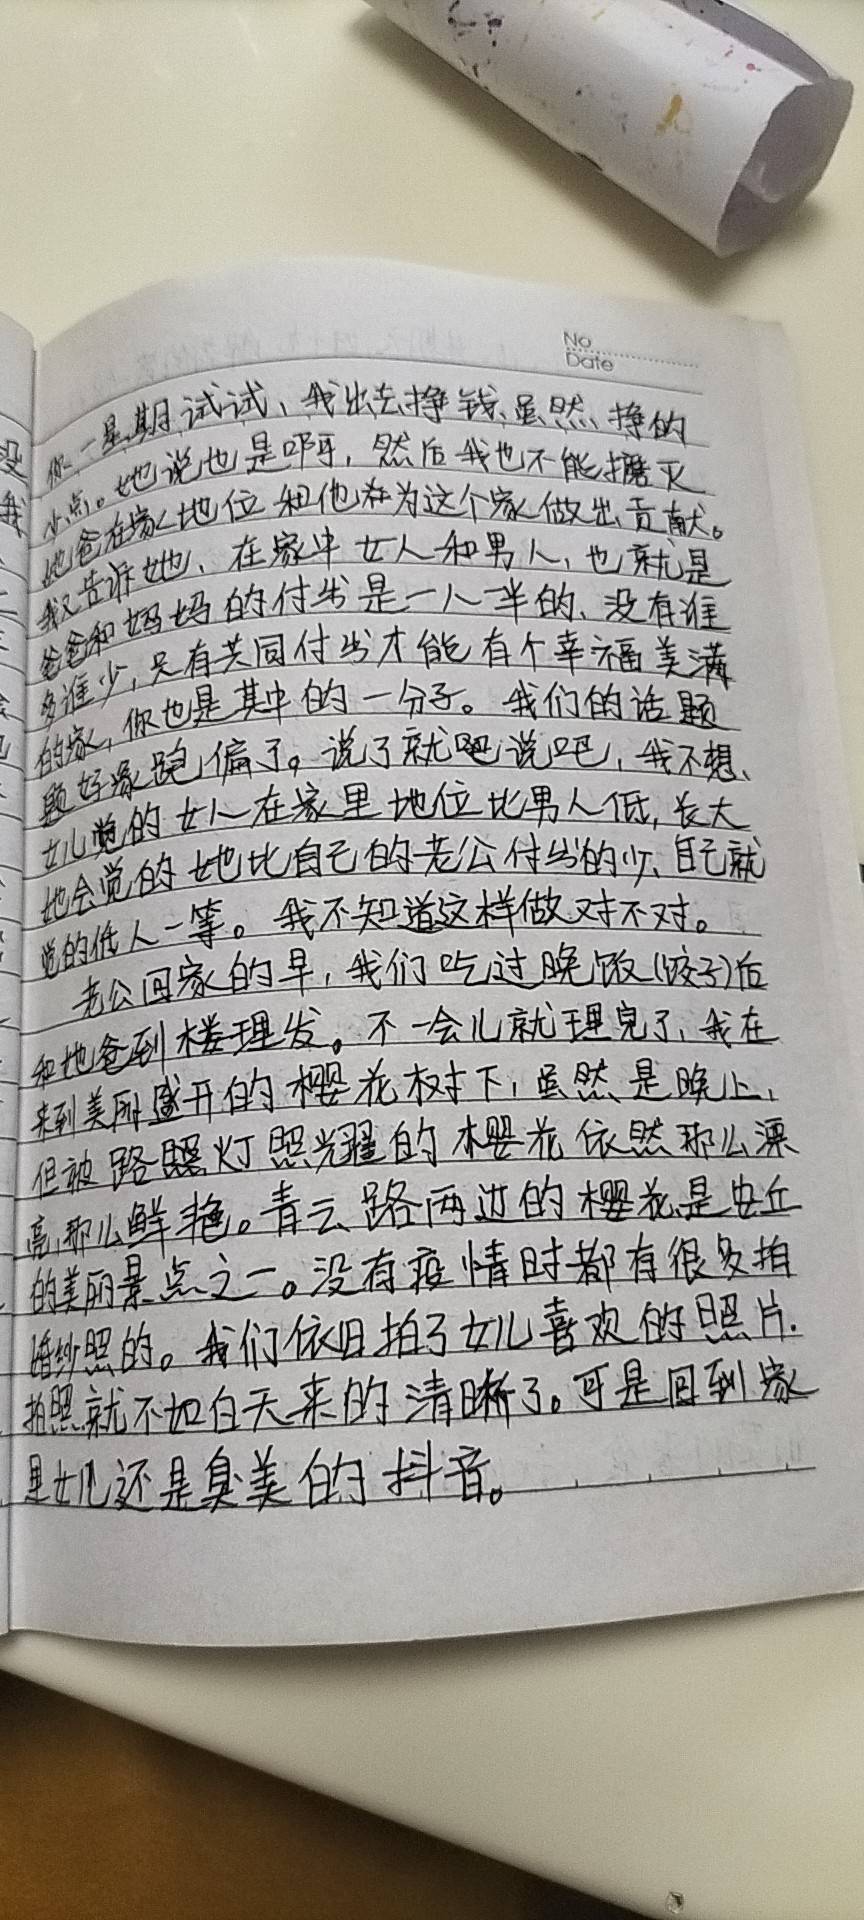 No
Date
你一星期试试、我出去挣钱、虽然挣的
小点。她说也是啊,然后我也不能磨灭
她爸在家地位和他在为这个家做出贡献。
我又告诉她、在家中女人和男人,也就是
爸爸和妈妈的付出是一人一半的、没有谁
多谁少,只有共同付出才能有个幸福美满
的家,你也是其中的一分子。我们的话题
题好像跑偏了。说了就吧说吧,我不想、
女儿觉的女人在家里地位比男人低,长大
她会觉的她比自己的老公付出的少、自己就
觉的低人一等。我不知道这样做对不对。
老公回家的早,我们吃过晚饭(饺子)后
和她爸到楼理发。不一会儿就理完了、我在
来到美丽盛开的樱花树下,虽然是晚上,
但被路照灯照光耀的樱花依然那么漂
亮,那么鲜艳。青云路两边的樱花是安丘
的美丽景点之一。没有疫情时都有很多拍
婚纱照的。我们依旧拍了女儿喜欢的照片.
拍照就不如白天来的清晰了。可是回到家
里女儿还是臭美的抖音。
没
我